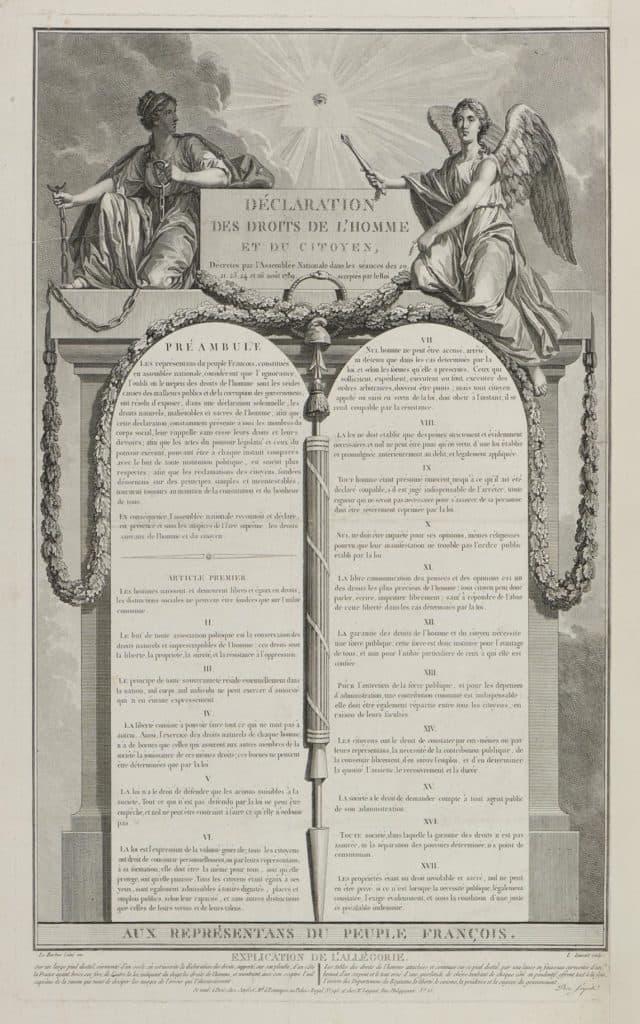 DÉCLARATION
DES DROITS DE L'HOMME
ET DU CITOYEN,
Décretés par l'Assemblée Nationale dans les séances des 20
21, 23, 24 et 26 août 1789, acceptés par le Roi
PRÉAMBULE
LES représentans du peuple François, constitués
en assemblée nationale, considérant que l'ignorance,
l'oubli ou le mépris des droits de l'homme sont les seules
causes des malheurs publics et de la corruption des gouvernemens,
ont résolu d'exposer, dans une déclaration solemnelle, les
droits naturels, inaliénables et sacrés de l'homme; afin que
cette déclaration, constamment présente à tous les membres du
corps social, leur rappelle sans cesse leurs droits et leurs
devoirs; afin que les actes du pouvoir législatif et ceux du
pouvoir exécutif, pouvant être à chaque instant comparés
avec le but de toute institution politique, en soient plus
respectés; afin que les réclamations des citoyens, fondées
désormais sur des principes simples et incontestables,
tournent toujours au maintien de la constitution et du bonheur
de tous.
EN conséquence, l'assemblée nationale reconnoit et déclare,
en présence et sous les auspices de l'Être suprême, les droits
suivans de l'homme et du citoyen
ARTICLE PREMIER
LES hommes naissent et demeurent libres et égaux en droits;
les distinctions sociales ne peuvent être fondées que sur l'utilité
commune
II
LE but de toute association politique est la conservation des
droits naturels et imprescriptibles de l'homme; ces droits sont
la liberté, la propriété, la sureté, et la résistance à l'oppression.
III
LE principe de toute souveraineté réside essentiellement dans
la nation, nul corps, nul individu ne peut exercer d'autorité
qui n'en émane expressement
IV
LA liberté consiste à pouvoir faire tout ce qui ne nuit pas à
autrui. Ainsi, l'exercice des droits naturels de chaque homme,
n'a de bornes que celles qui assurent aux autres membres de la
société la jouissance de ces mêmes droits; ces bornes ne peuvent
être déterminées que par la loi
V
LA loi n'a le droit de défendre que les actions nuisibles à la
société. Tout ce qui n'est pas défendu par la loi ne peut être
empêché, et nul ne peut être contraint à faire ce qu'elle n'ordonne
pas
VI
LA loi est l'expression de la volonté générale; tous les citoyens
ont droit de concourir personnellement, ou par leurs représentans,
à sa formation; elle doit être la même pour tous, soit qu'elle
protege, soit qu'elle punisse. Tous les citoyens étant égaux à ses
yeux, sont également admissibles à toutes dignités, places et
emplois publics, selon leur capacité, et sans autres distinctions
que celles de leurs vertus et de leurs talens.
VII
NUL homme ne peut être accusé, arrêté,
ni détenu que dans les cas déterminés par la
loi, et selon les formes qu'elle a prescrites. Ceux qui
sollicitent, expédient, exécutent ou font exécuter des
ordres arbitraires, doivent être punis; mais tout citoyen
appelé ou saisi en vertu de la loi, doit obéir à l'instant, il se
rend coupable par la résistance.
VIII
LA loi ne doit établir que des peines strictement et évidemment
nécessaires, et nul ne peut être puni qu'en vertu d'une loi établie
et promulguée antérieurement au délit, et légalement appliquée
IX
TOUT homme étant présumé innocent jusqu'à ce qu'il ait été
déclaré coupable, s'il est jugé indispensable de l'arrêter, toute
rigueur qui ne seroit pas nécessaire pour s'assurer de sa personne
doit être sévèrement réprimée par la loi
X
NUL ne doit être inquiété pour ses opinions, mêmes religieuses
pourvu que leur manifestation ne trouble pas l'ordre public
établi par la loi
XI
LA libre communication des pensées et des opinions est un
des droits les plus précieux de l'homme; tout citoyen peut donc
parler, écrire, imprimer librement; sauf à répondre de l'abus
de cette liberté dans les cas déterminés par la loi.
XII
LA garantie des droits de l'homme et du citoyen nécessite
une force publique; cette force est donc instituée pour l'avantage
de tous, et non pour l'utilité particuliere de ceux à qui elle est
confiée
XIII
POUR l'entretien de la force publique, et pour les dépenses
d'administration, une contribution commune est indispensable;
elle doit être également répartie entre tous les citoyens, en
raison de leurs facultés
XIV
LES citoyens ont le droit de constater par eux-mêmes ou par
leurs représentans, la nécessité de la contribution publique, de
la consentir librement, d'en suivre l'emploi, et d'en déterminer
la quotité, l'assiete, le recouvrement et la durée
XV
LA société a le droit de demander compte à tout agent public
de son administration.
XVI
TOUTE société, dans laquelle la garantie des droits n'est pas
assurée, ni la séparation des pouvoirs déterminée, n'a point de
constitution
XVII
LES propriétés étant un droit inviolable et sacré, nul ne peut
en être privé, si ce n'est lorsque la nécessité publique, légalement
constatée, l'exige évidemment, et sous la condition d'une juste
et préalable indemnité.
AUX REPRÉSENTANS DU PEUPLE FRANÇOIS.
EXPLICATION DE L'ALLÉGORIE.